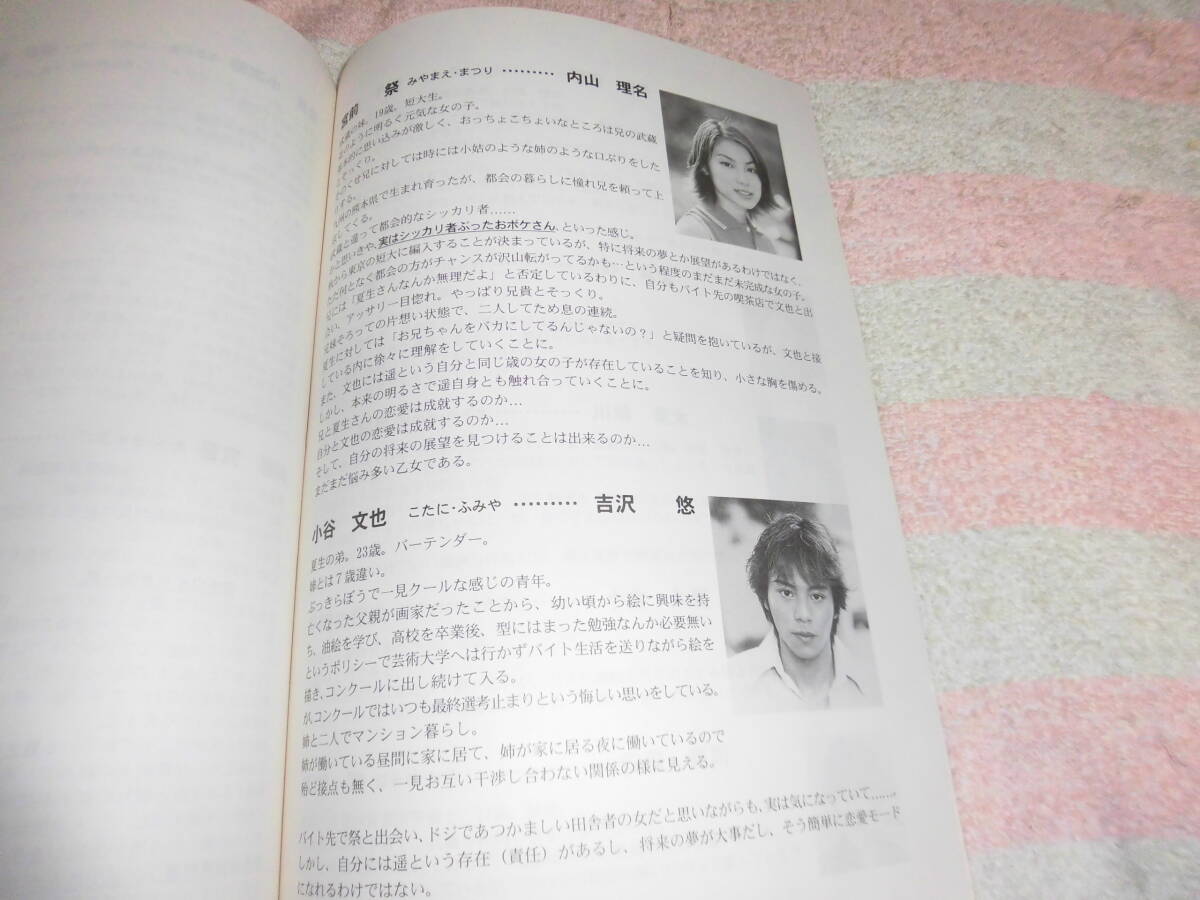 宮前　祭　みやまえ・まつり ……… 内山　理名
の妹。19歳。短大生。
のように明るく元気な女の子。
的に思い込みが激しく、おっちょこちょいなところは兄の武蔵
そっくり。
のくせ兄に対しては時には小姑のような姉のような口ぶりをした
りする。
の熊本県で生まれ育ったが、都会の暮らしに憧れ兄を頼って上
してくる。
と違って都会的なシッカリ者……
と思いきや、実はシッカリ者ぶったおボケさん、といった感じ。
から東京の短大に編入することが決まっているが、特に将来の夢とか展望があるわけではなく、
ただ何となく都会の方がチャンスが沢山転がってるかも…という程度のまだまだ未完成な女の子。
兄には「夏生さんなんか無理だよ」と否定しているわりに、自分もバイト先の喫茶店で文也と出
会い、アッサリ一目惚れ。やっぱり兄貴とそっくり。
兄妹そろっての片想い状態で、二人してため息の連続。
夏生に対しては「お兄ちゃんをバカにしてるんじゃないの？」と疑問を抱いているが、文也と接
している内に徐々に理解をしていくことに。
また、文也には遥という自分と同じ歳の女の子が存在していることを知り、小さな胸を傷める。
しかし、本来の明るさで遥自身とも触れ合っていくことに。
兄と夏生さんの恋愛は成就するのか…
自分と文也の恋愛は成就するのか…
そして、自分の将来の展望を見つけることは出来るのか…
まだまだ悩み多い乙女である。
小谷　文也　こたに・ふみや ……… 吉沢　悠
夏生の弟。23歳。バーテンダー。
姉とは７歳違い。
ぶっきらぼうで一見クールな感じの青年。
亡くなった父親が画家だったことから、幼い頃から絵に興味を持
ち、油絵を学び、高校を卒業後、型にはまった勉強なんか必要無い
というポリシーで芸術大学へは行かずバイト生活を送りながら絵を
描き、コンクールに出し続けて入る。
が、コンクールではいつも最終選考止まりという悔しい思いをしている。
姉と二人でマンション暮らし。
姉が働いている昼間に家に居て、姉が家に居る夜に働いているので
殆ど接点も無く、一見お互い干渉し合わない関係の様に見える。
バイト先で祭と出会い、ドジであつかましい田舎者の女だと思いながらも、実は気になっていて……。
しかし、自分には遥という存在（責任）があるし、将来の夢が大事だし、そう簡単に恋愛モード
になれるわけではない。